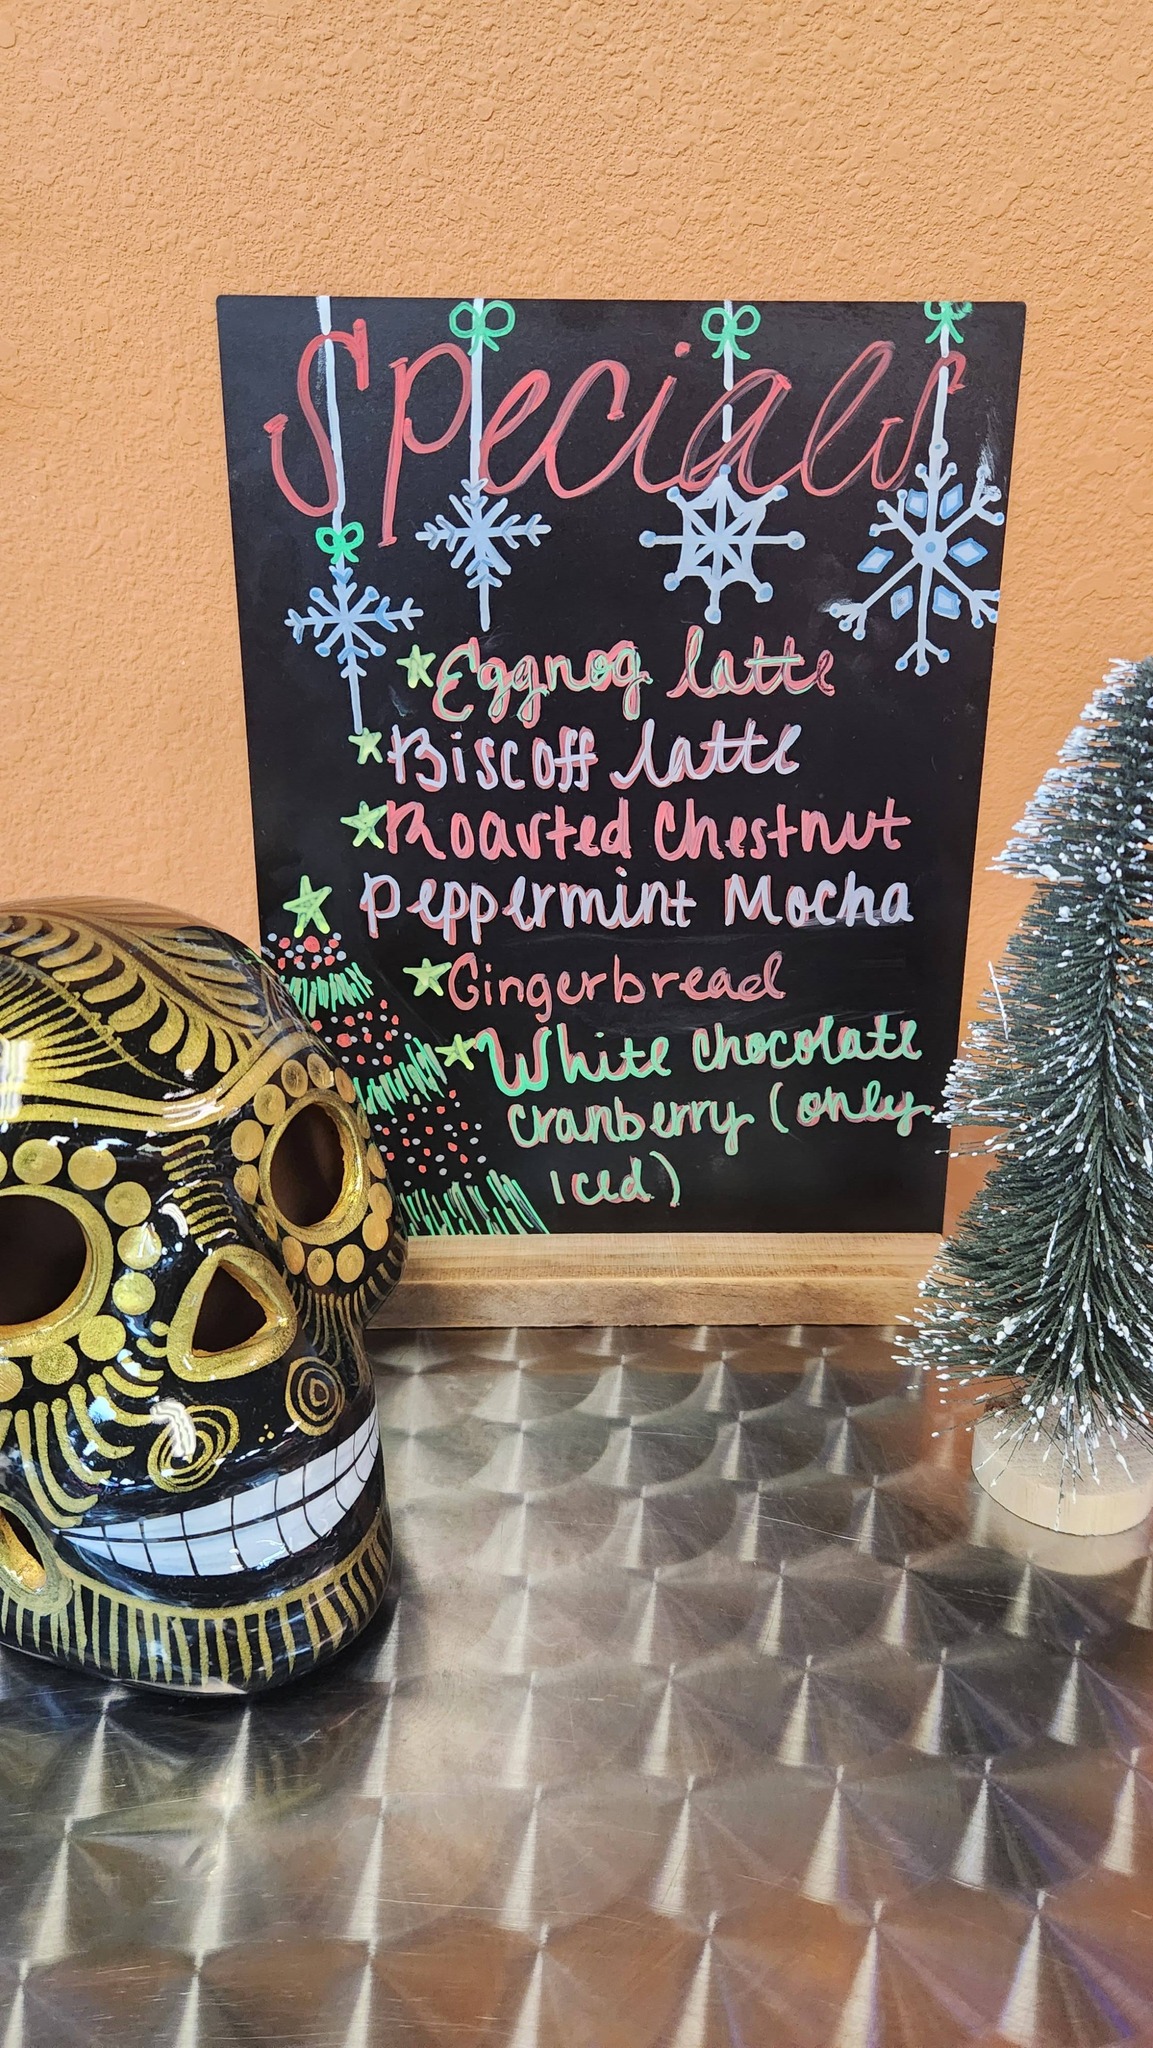 Specials
Eggnog latte
Biscoff latte
Roasted Chestnut
Peppermint Mocha
Gingerbread
White Chocolate
Cranberry (only
iced)